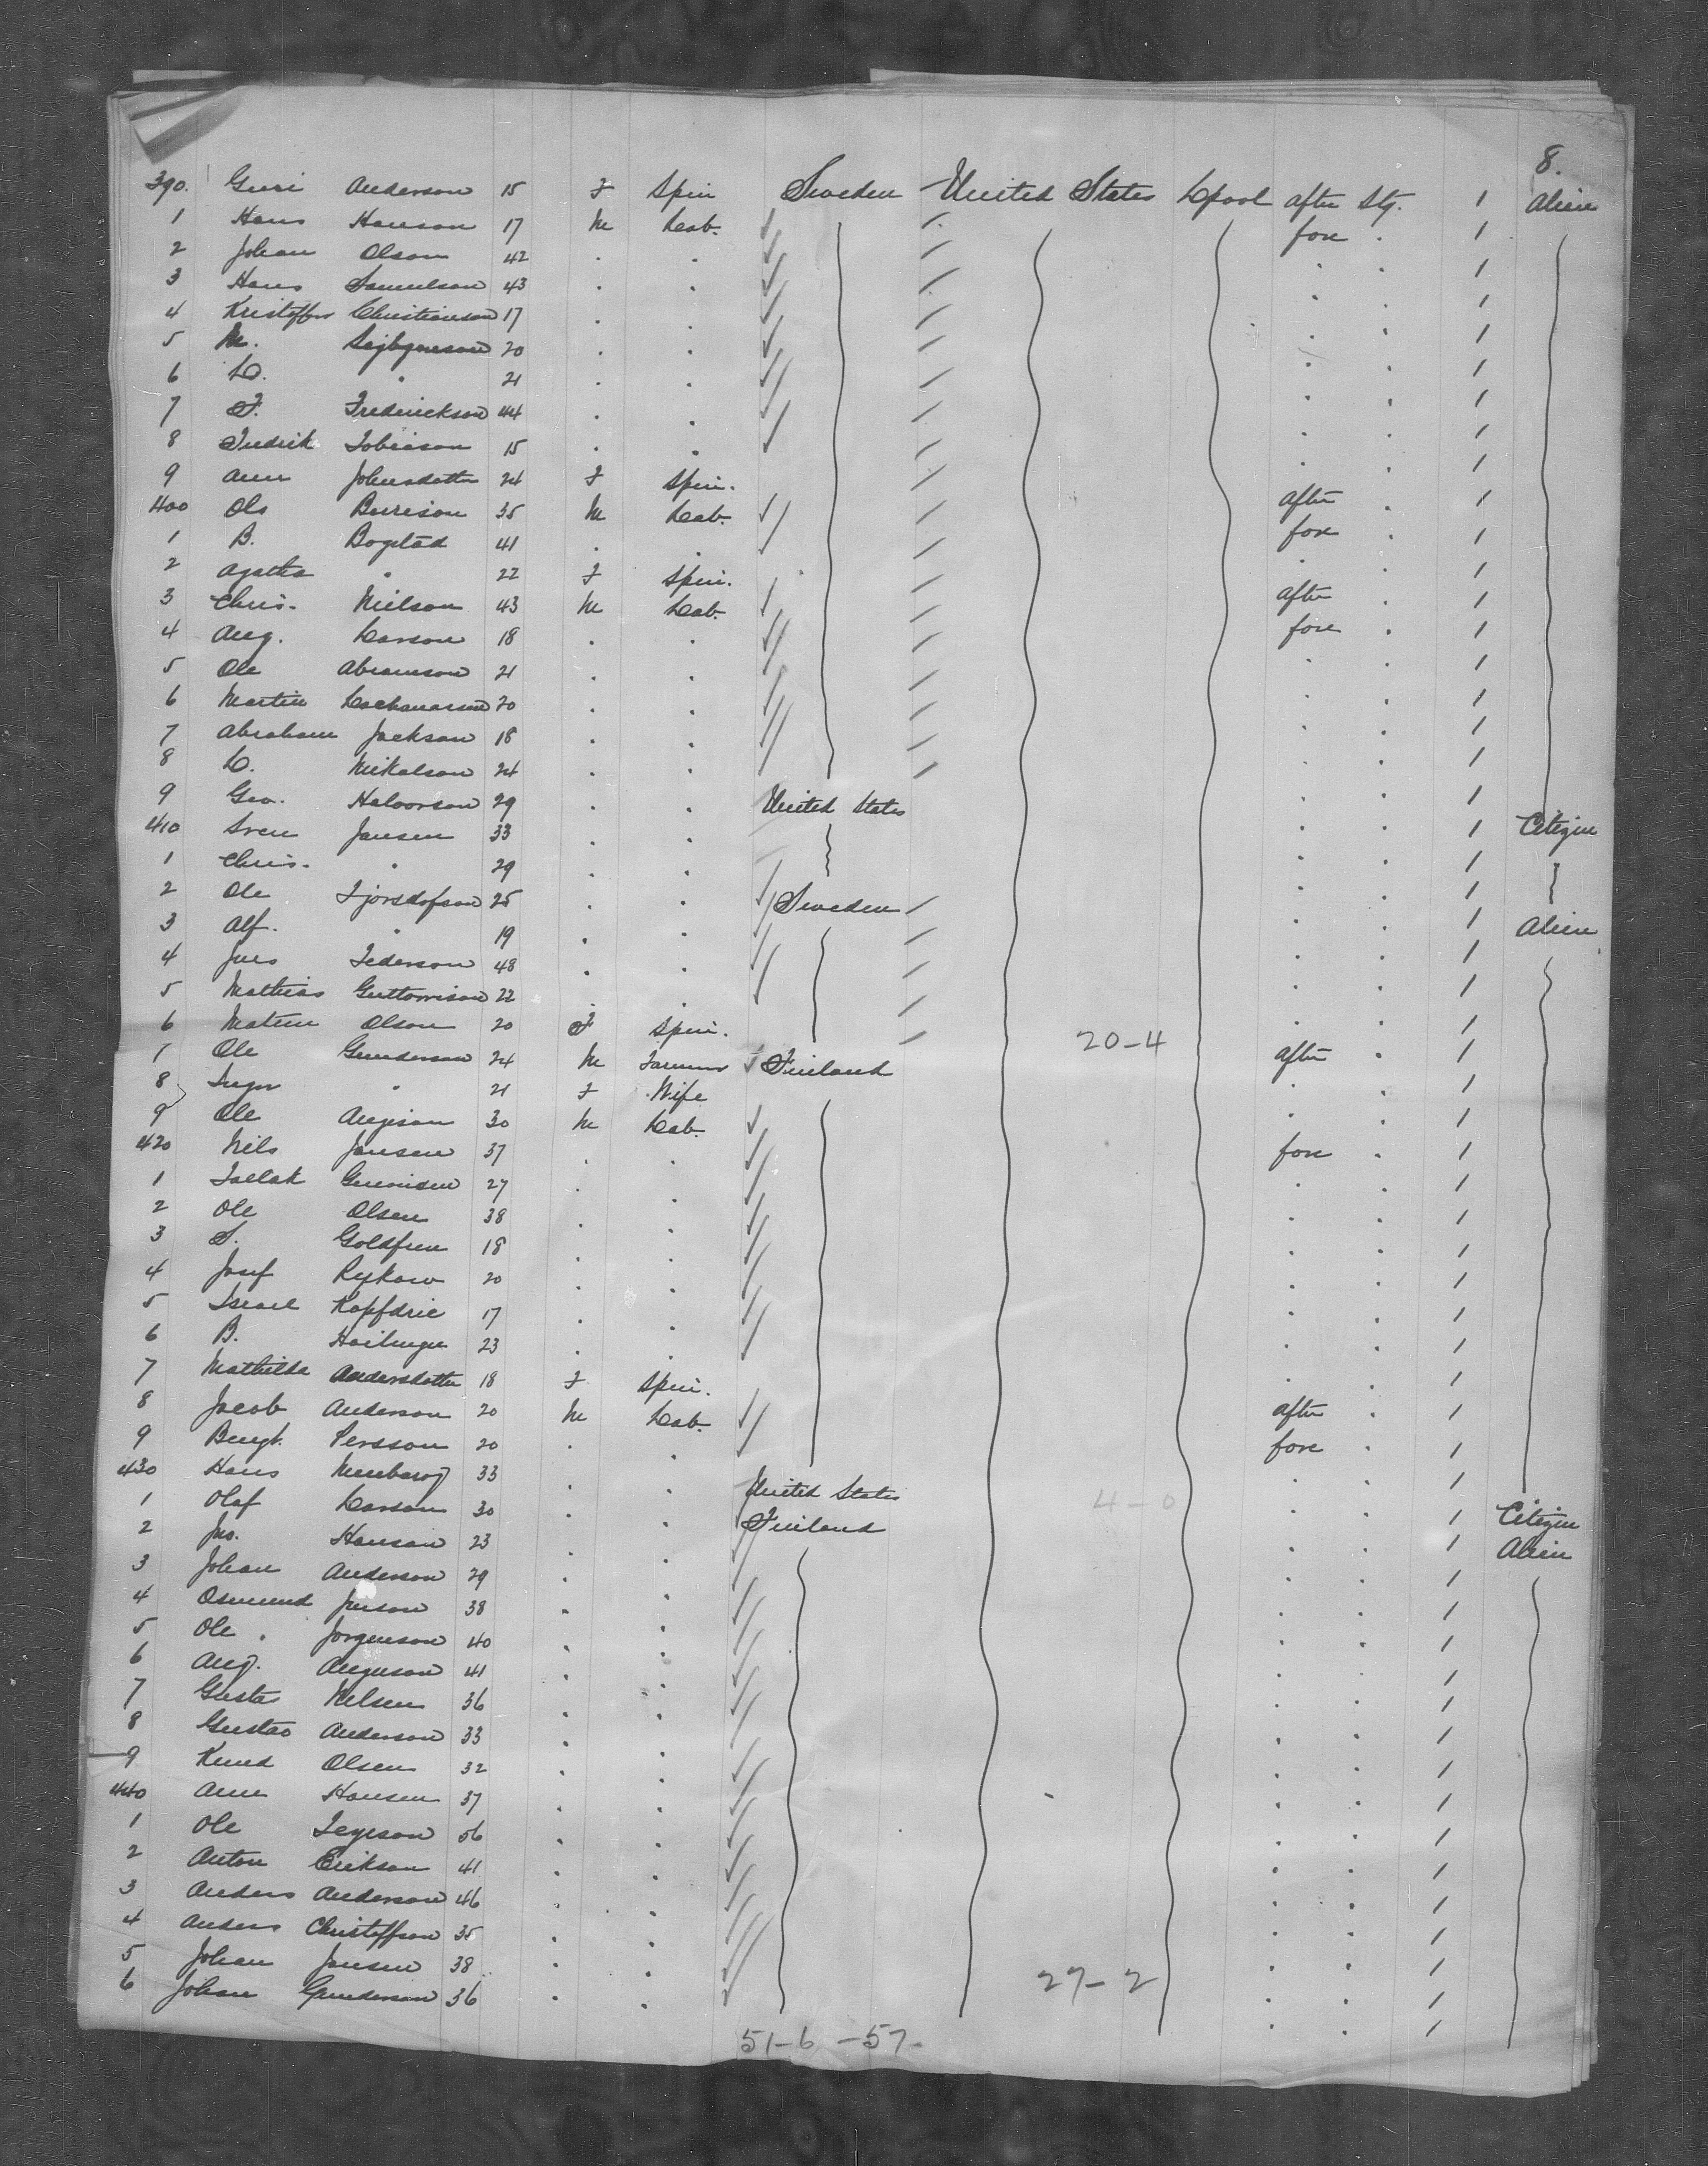 8.
390. Guri Anderson 15 F Spin Sweden United States Lpool after Stg. 1 Alien
1 Hans Hanson 17 M Lab. fore . 1
2 Johan Olson 42 . . . . 1
3 Hans Samulson 43 . . . . 1
4 Kristoffer Christianson 17 . . . . 1
5 M. 20 . . . . 1
6 L. " 21 . . . . 1
7 F. Frederickson 44 . . . . 1
8 Fredrik Tobiason 15 . . . . 1
9 Ann Johnsdotter 24 F Spin. after . 1
400 Ols 35 M Lab. fore . 1
1 B. Bogstad 41 . . . . 1
2 Agatha " 22 F Spin. after . 1
3 Chris. Nielson 43 M Lab. fore . 1
4 Aug. Larson 18 . . . . 1
5 Ole Abramson 21 . . . . 1
6 Martin 20 . . . . 1
7 Abraham Jackson 18 . . . . 1
8 L. Mikalson 24 . . . . 1
9 Geo. Halvorson 29 . . United States . . 1 Citizen
410 Sven Jansen 33 . . . . 1
1 Chris. " 29 . . . . 1
2 Ole 25 . . Sweden . . 1 Alien
3 Alf. " 19 . . . . 1
4 Jns Pederson 48 . . . . 1
5 Mathias Guttormson 22 . . . . 1
6 Olson 20 F Spin. 20-4 after . 1
7 Ole Gunderson 24 M Farmer Finland . . 1
8 Inger " 21 F Wife . . 1
9 Ole 30 M Lab. fore . 1
420 Nils Jansen 37 . . . . 1
1 27 . . . . 1
2 Ole Olsen 38 . . . . 1
3 S. 18 . . . . 1
4 Josef Rykow 20 . . . . 1
5 Israel 17 . . . . 1
6 B. 23 . . . . 1
7 Mathilda Andersdotter 18 F Spin. after . 1
8 Jacob Anderson 20 M Lab. fore . 1
9 Bengt. Persson 20 . . . . 1
430 Hans 33 . . United States 4-0 . . 1 Citizen
1 Olaf Larson 30 . . Finland . . 1 Alien
2 Jno. Hanson 23 . . . . 1
3 Johan Anderson 29 . . . . 1
4 Osmund Jnson 38 . . . . 1
5 Ole . Jorgenson 40 . . . . 1
6 Aug. 41 . . . . 1
7 Gusta Nelsen 36 . . . . 1
8 Gustav Anderson 33 . . . . 1
9 Knud Olsen 32 . . . . 1
440 Hansen 37 . . . . 1
1 Ole 56 . . . . 1
2 Anton Erikson 41 . . . . 1
3 Anders Anderson 46 . . . . 1
4 Anders Christoffson 35 . . . . 1
5 Johan Jansen 38 . . 27-2 . . 1
6 Johan Gunderson 36 . . . . 1
51-6-57-